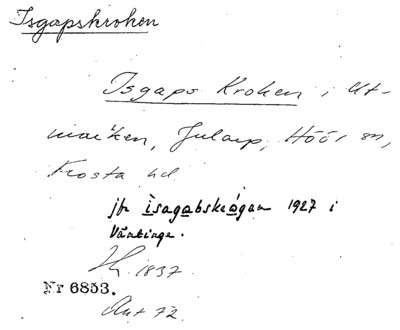 Isgapskroken
Isgaps Kroken i Ut-
marken, Jularp, Höör sn,
Frosta hd
jfr isagabskrogan 1927 i
Väntinge.
1837
Nr 6853.
Ant 72.